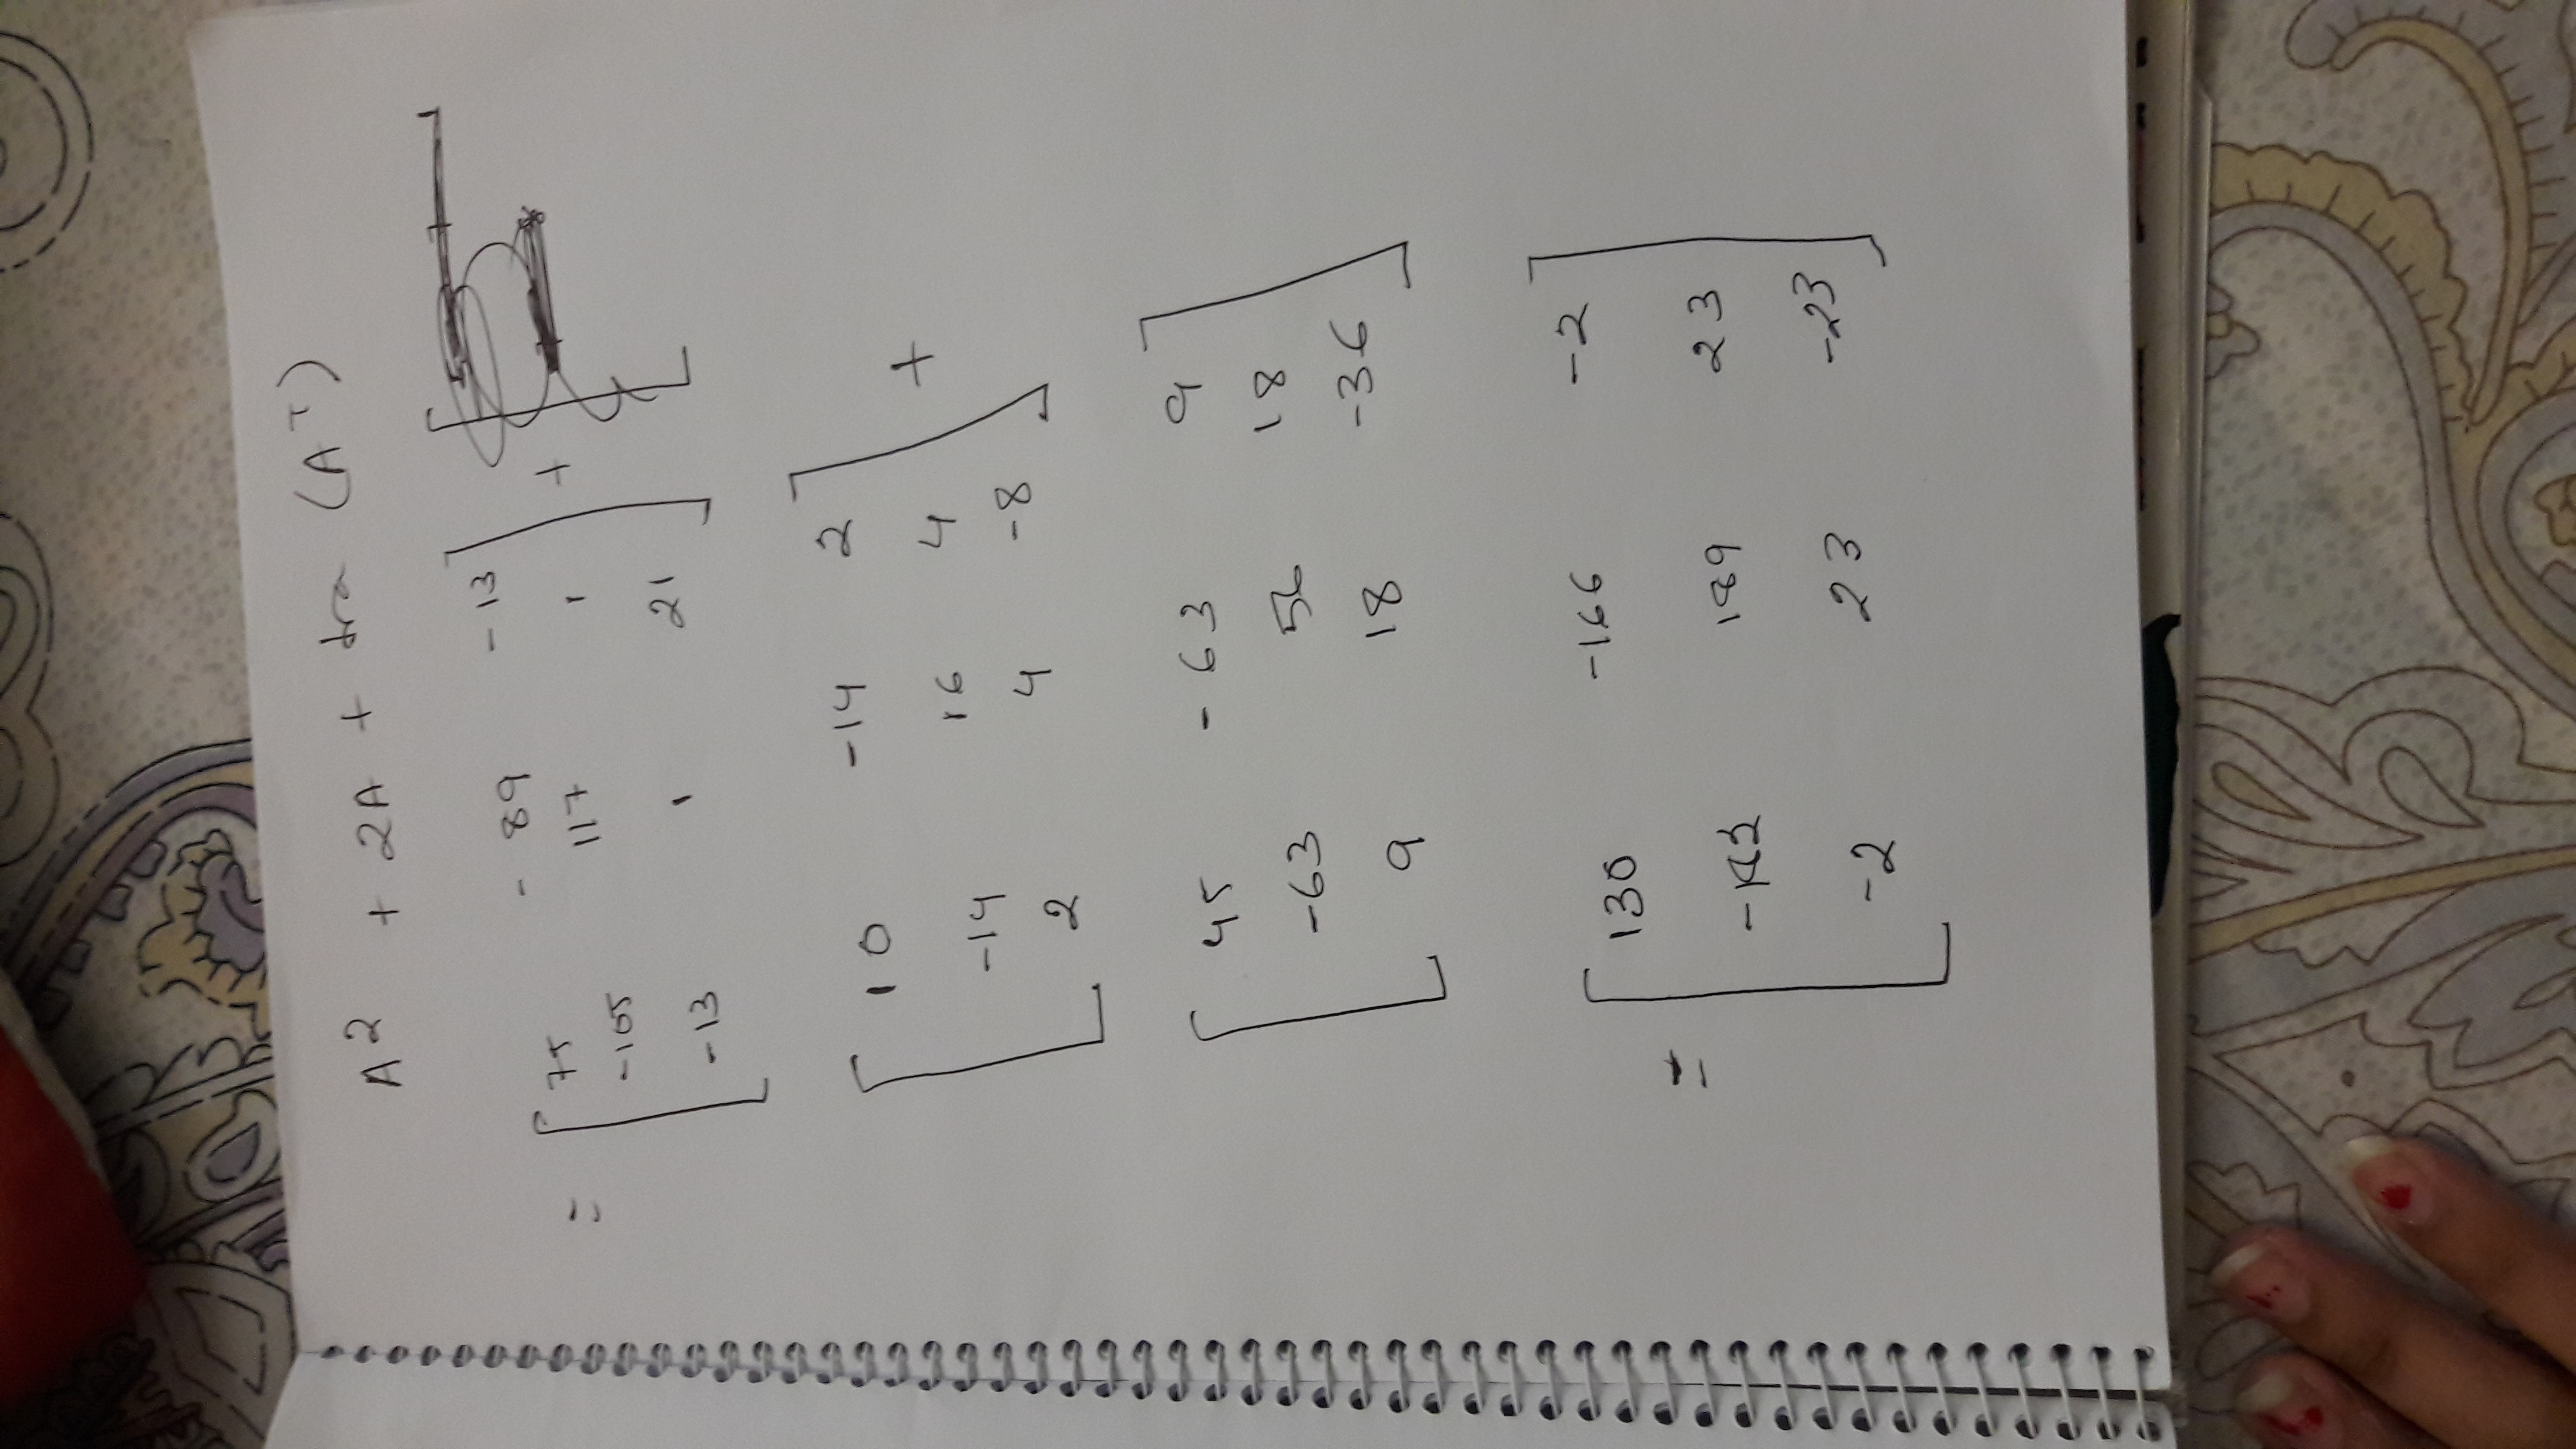 A2 + 2A + tra (A^T)
= [ 75 -89 -13
-105 117 1
-13 1 21 ] + [
[ 10 -14 2
-14 16 4
2 4 -8 ] +
[ 45 -63 9
-63 18
9 18 -36 ]
= [ 130 -166 -2
189 23
-2 23 -23 ]